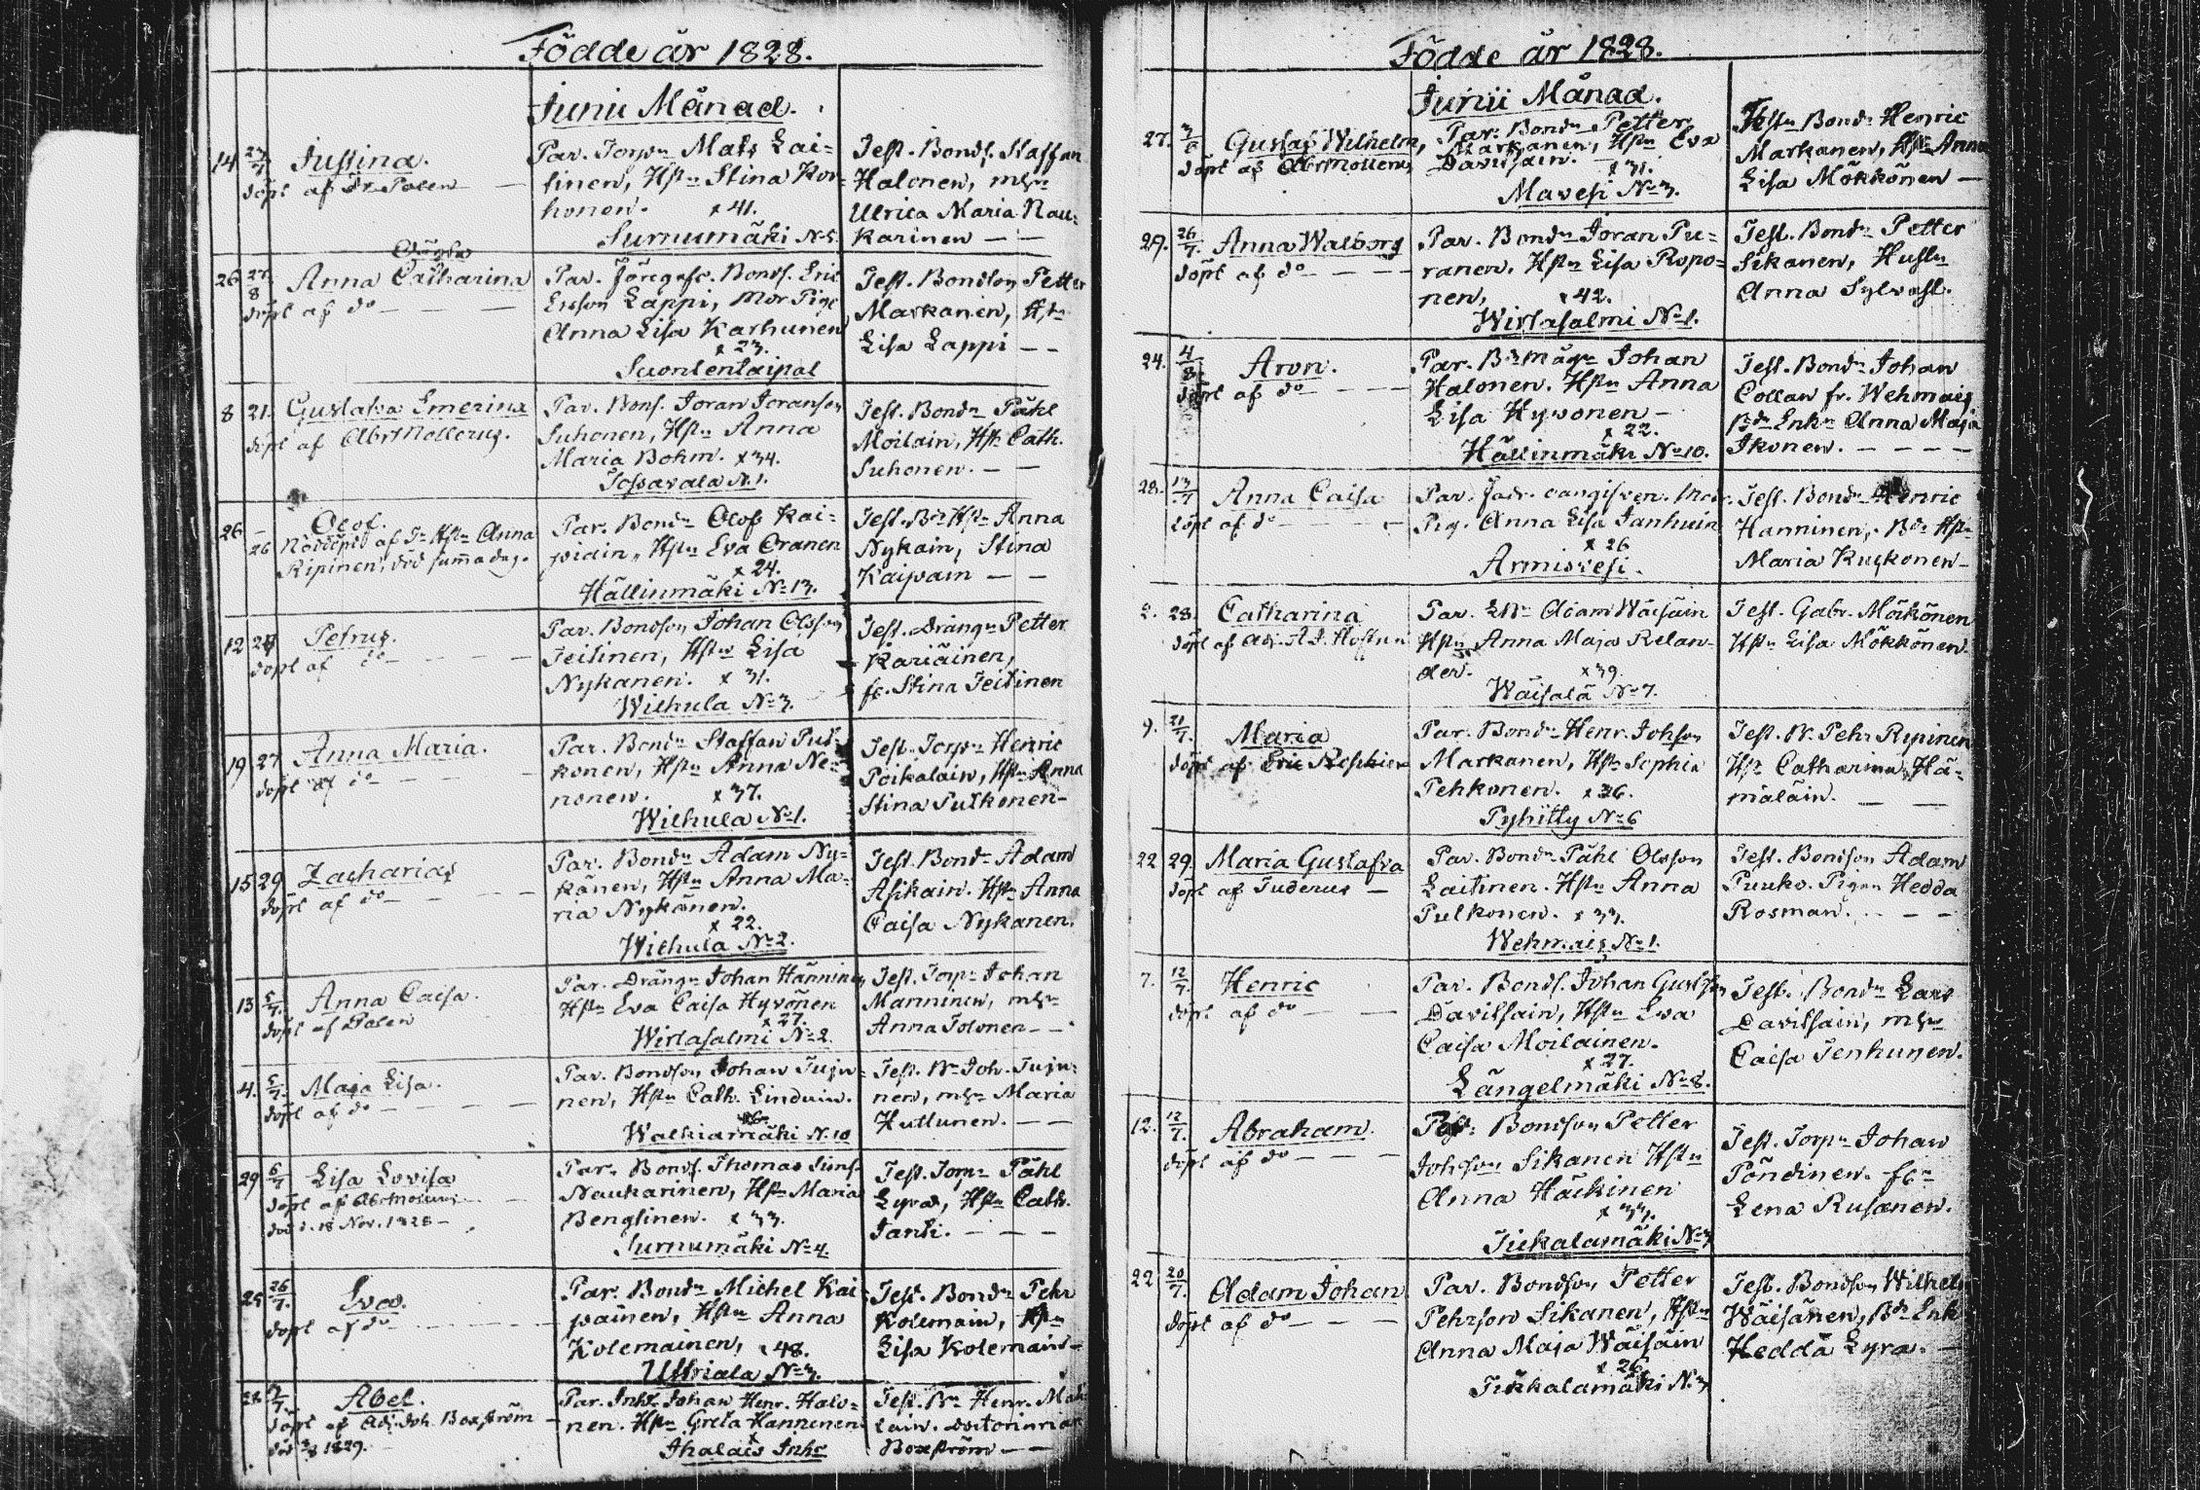 Födde år 1828.
Junii Månad.
14 27/7 Justina.
döpt af Dr Polen
Par. Torpn Mats Lai=
tinen, Hstn Stina Kor=
honen. x 41.
Surnumäki No 5.
Test. Bonds. Staffan
Halonen, m&n
Ulrica Maria Nau=
karinen
26 8
Anna Catharina
döpt af do
Par. Bonds. Eric
Ersson Lappi, Mor Pige
Anna Lisa Karhunen
x 23.
Suontentaipal
Test. Bondson Petter
Markanen, Hstn
Lisa Lappi
8 21. Gustafva Emerina
döpt af Abr Mollerus.
Par. Bons. Joran Joranson
Suhonen, Hstn Anna
Maria Bohm. x 34.
Toparala N. 1.
Test. Bondn Påhl
Moilain, Hstn Cath.
Suhonen.
26 26 Olof.
Nöddöpt af Hstn Anna
Ripinen, död samma dag.
Par. Bondn Olof Kai=
piain, Hstn Eva Oranen
x 24.
Hällinmäki No 13.
Test. Bdn Hstn Anna
Nykäin, Stina
Kaipain
12 24 Petrus.
döpt af do
Par. Bondson Johan Olsson
Teitinen, Hstn Lisa
Nykanen. x 31.
Wilhula No 3.
Test. Drängn Petter
Kariäinen,
fr. Stina Teitinen
19 27 Anna Maria.
döpt af do
Par. Bondn Staffan Pul=
konen, Hstn Anna Ne=
nonen. x 37.
Wilhula No 1.
Test. Torpn Henric
Poikalain, Hstn Anna
Stina Pulkonen
15 29 Zacharias
döpt af do
Par. Bondn Adam Ny=
känen, Hstn Anna Ma=
ria Nykänen.
x 22.
Wilhula No 2.
Test. Bondn Adam
Asikain. Hstn Anna
Caisa Nykanen.
13 5/7 Anna Caisa.
döpt af Polen
Par. Drängn Johan Hänninen
Hstn Eva Caisa Hyvönen
x 27.
Wirtasalmi No 2.
Test. Torpn Johan
Manninen, m&n
Anna Tolonen
4. 5/7 Maja Lisa.
döpt af do
Par. Bondson Johan Tuju=
nen, Hstn Cath. Linduin.
Walkiamäki N. 10
Test. Bn Joh. Tuju=
nen, m&n Maria
Huttunen.
29 6/7 Lisa Lovisa
döpt af Abr Mollerus
död d. 18 Nov. 1828
Par. Bonds. Thomas Sims.
Naukarinen, Hstn Maria
Bengtinen. x 33.
Surnumäki No 4.
Test. Torpn Påhl
Lyra, Hstn Cath.
Tanti.
25 26/7. Eva.
döpt af do
Par. Bondn Michel Kai
päinen, Hstn Anna
Kolemainen, x 48.
Uttriala No 3.
Test. Bondn Pehr
Kolemain, Hstn
Lisa Kolemain
Abel.
döpt af Adj. Joh. Boxström
död 1829.
Par. Inhs Johan Henr. Halo=
nen. Hstn Greta Hanninen
Ihalais Inhs
Test. Bn Henr.
Boxström
Födde år 1828.
Junii Månad.
27. 3/6 Gustaf Wilhelm,
döpt af Abr Mollerus
Par. Bondn Petter
Markanen, Hstn Eva
Davitsain. x 31.
Mavesi No 3.
Test. Bondn Henric
Markanen, Hstn Anna
Lisa Mökkönen
29. 26/7. Anna Walborg
döpt af do
Par. Bondn Joran Pu=
ranen, Hstn Lisa Ropo=
nen, x 42.
Wirtasalmi No 1.
Test. Bondn Petter
Sikanen, Hustn
Anna Sylvast.
24. 4/8 Aron.
döpt af do
Par. Bdmågn Johan
Halonen. Hstn Anna
Lisa Hyvonen
x 22.
Hällinmäki No 10.
Test. Bondn Johan
Collan fr. Wehmais
Bdn Enkn Anna Maja
Ikonen.
28. 13/7 Anna Caisa
döpt af do
Par. Fadr. oangifven. Mor
Pig. Anna Lisa Janhuin
x 26
Armisvesi.
Test. Bondn Henric
Hanninen, Bdn Hstn
Maria Kuckonen
2. 28. Catharina
döpt af Adj. A. J. Hosfren
Par. Adam Wäisäin
Hstn Anna Maja Relan=
der. x 39.
Wäisälä No 7.
Test. Gabr. Mökkönen
Hstn Lisa Mökkönen.
9. 21/7. Maria
döpt af Eric Roschier
Par. Bondn Henr. Johson
Markanen, Hstn Sophia
Pehkonen. x 36.
Pyhitty No 6
Test. Bn Pehr Ripinen
Hstn Catharina Hä=
mäläin.
22 29. Maria Gustafva
döpt af Tuderus
Par. Bondn Påhl Olsson
Laitinen. Hstn Anna
Pulkonen. x 33.
Wehmais No 1.
Test. Bondson Adam
Puuko. Pigan Hedda
Rosman.
7. 12/7. Henric
döpt af do
Par. Bonds. Johan Gustfson
Davitsain, Hstn Eva
Caisa Moilainen.
x 27.
Längelmäki No 8.
Test. Bondn Lars
Davitsain, m&n
Caisa Tenhunen.
12. 12/7. Abraham.
döpt af do
Par. Bondson Petter
Johsson Sikanen Hstn
Anna Häckinen
x 33.
Tickalamäki No 3
Test. Torpn Johan
Pöndinen. fr
Lena Rusanen.
22 20/7. Adam Johan
döpt af do
Par. Bondson Petter
Pehrson Sikanen, Hstn
Anna Maja Wäisäin
x 26
Tikkalamäki N. 3
Test. Bondson Wilhelm
Wäisänen, Bdn Enk
Hedda Lyra.